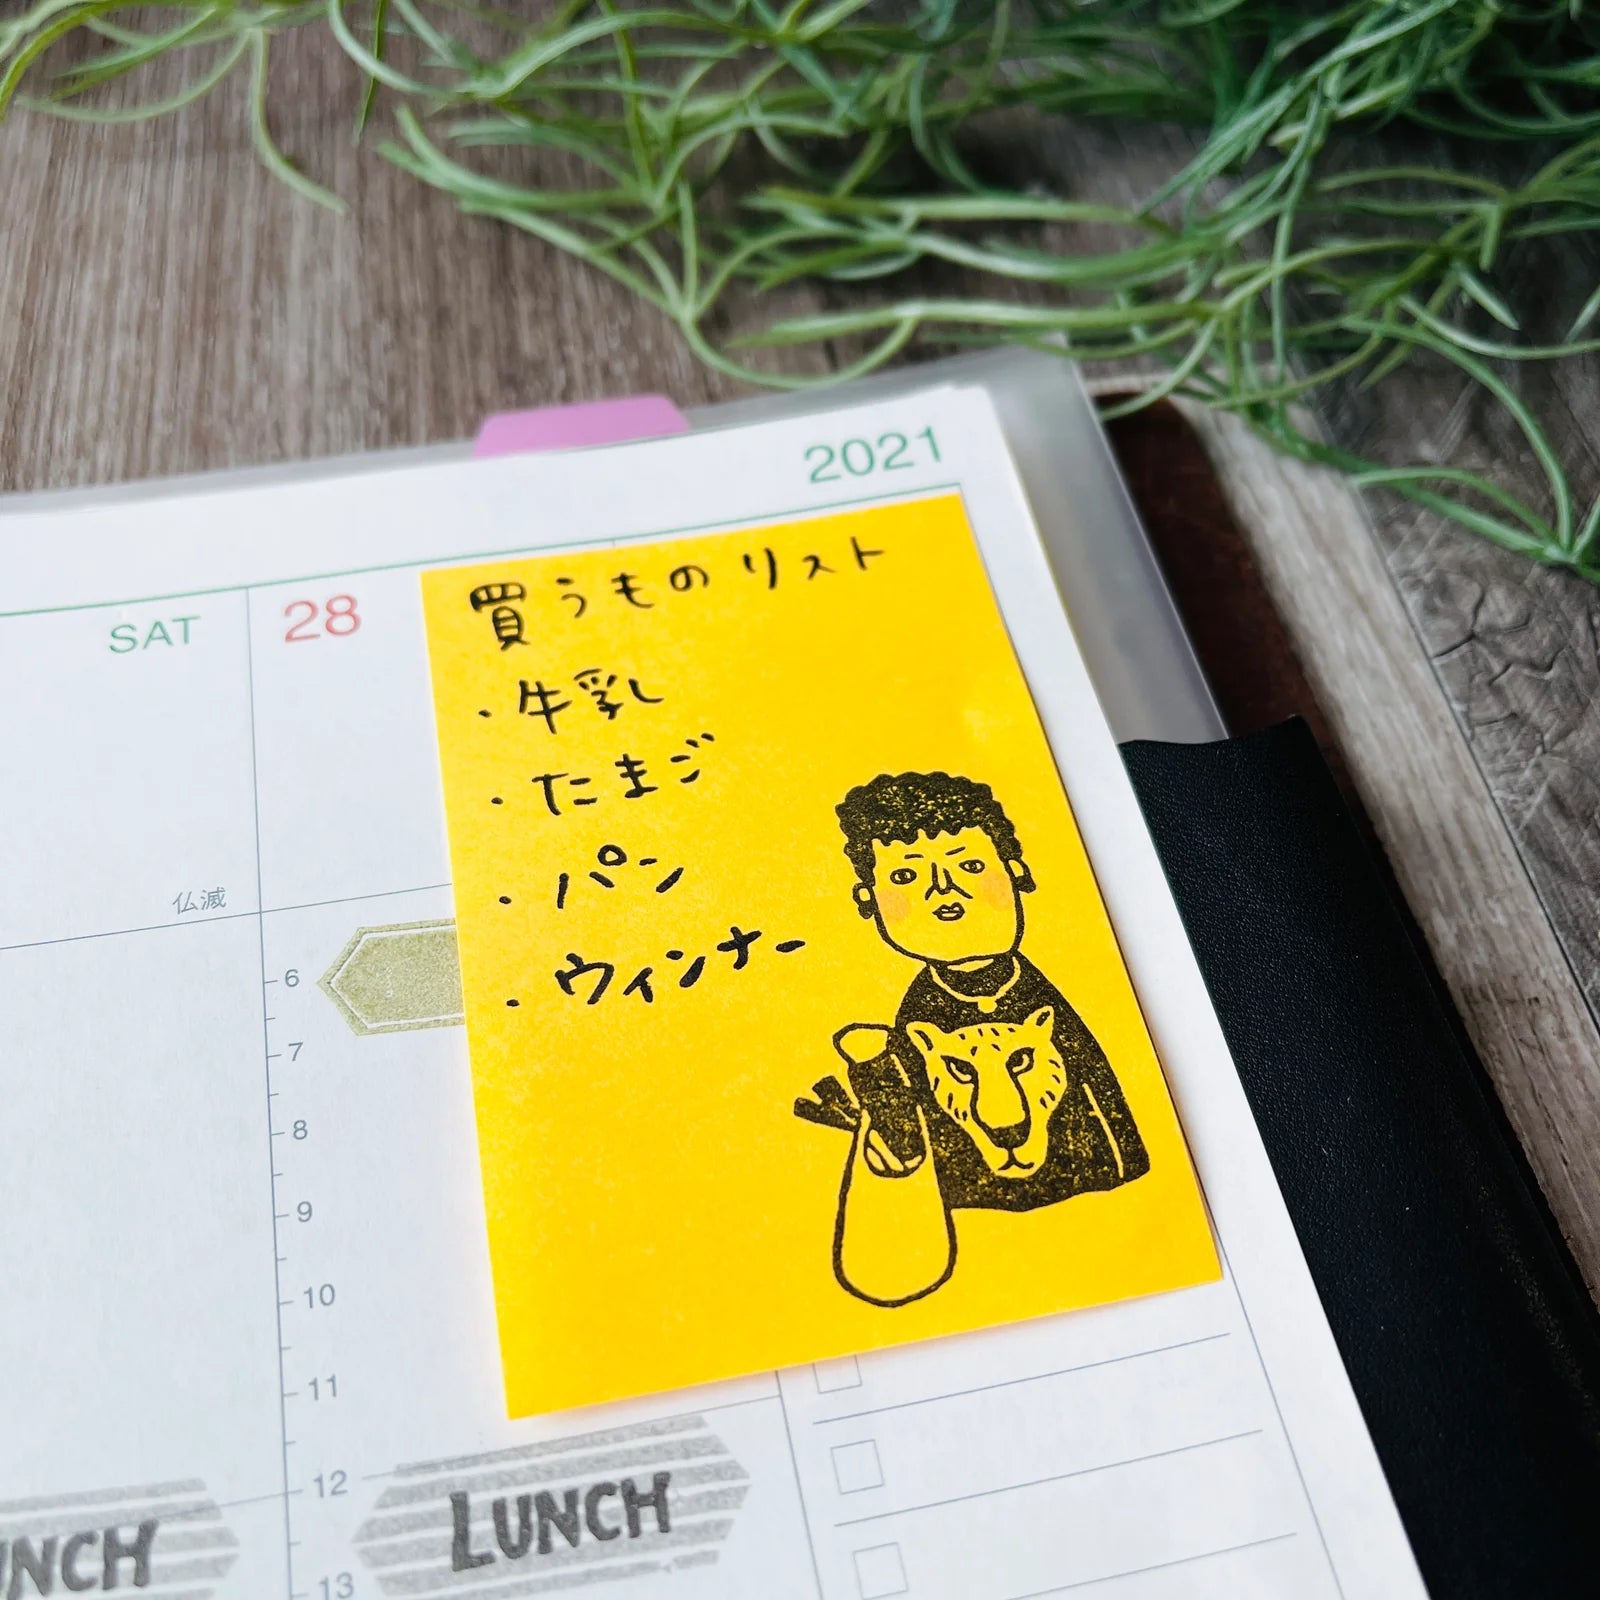 2021
SAT
28
仏滅
買うものリスト
・牛乳
・たまご
・パン
・ウィンナー
6
7
8
9
10
11
12
13
LUNCH
UNCH